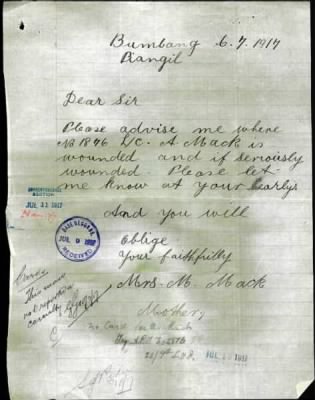 Bumbang 6.7.1917
Piangil
Dear Sir
Please advise me where
No 1846 L/C. A Mack is
wounded and if seriously
wounded. Please let
me know at your earlys
And you will
Oblige
Your faithfilly
Mrs. M. Mack
Mother,
CORRESPONDENCE
SECTION
JUL 11 1917
BASE RECORDS.
JUL 9 1917
RECEIVED
This man
not reported
casualty